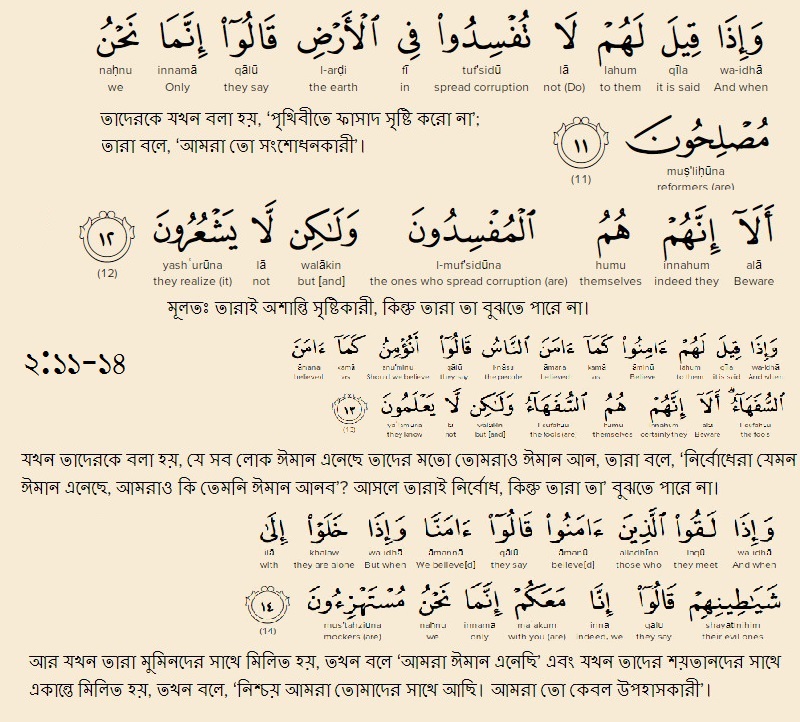 وَإِذَا قِيلَ لَهُمْ لَا تُفْسِدُوا۟ فِى ٱلْأَرْضِ قَالُوٓا۟ إِنَّمَا نَحْنُ
naḥnu innamā qālū l-arḍi fī tuf'sidū lā lahum qīla wa-idhā
we Only they say the earth in spread corruption not (Do) to them it is said And when
তাদেরকে যখন বলা হয়, ‘পৃথিবীতে ফাসাদ সৃষ্টি করো না’;
তারা বলে, ‘আমরা তো সংশোধনকারী’।
مُصْلِحُونَ ١١
muṣ'liḥūna
(11) reformers (are)
أَلَآ إِنَّهُمْ هُمُ ٱلْمُفْسِدُونَ وَلَـٰكِن لَّا يَشْعُرُونَ ١٢
yashʿurūna lā walākin l-muf'sidūna humu innahum alā
(12) they realize (it) not but [and] the ones who spread corruption (are) themselves indeed they Beware
মূলতঃ তারাই অশান্তি সৃষ্টিকারী, কিন্তু তারা তা বুঝতে পারে না।
২:১১-১৪
وَإِذَا قِيلَ لَهُمْ ءَامِنُوا۟ كَمَآ ءَامَنَ ٱلنَّاسُ قَالُوٓا۟ أَنُؤْمِنُ كَمَآ ءَامَنَ
āmana kamā anu'minu qālū l-nāsu āmana kamā āminū lahum qīla wa-idhā
believed as Should we believe they say the people believed as Believe to them it is said And when
ٱلسُّفَهَآءُ ۗ أَلَآ إِنَّهُمْ هُمُ ٱلسُّفَهَآءُ وَلَـٰكِن لَّا يَعْلَمُونَ ١٣
yaʿlamūna lā walākin l-sufahāu humu innahum alā l-sufahāu
(13) they know not but [and] the fools (are) themselves certainly they Beware the fools
যখন তাদেরকে বলা হয়, যে সব লোক ঈমান এনেছে তাদের মতো তোমরাও ঈমান আন, তারা বলে, ‘নির্বোধেরা যেমন
ঈমান এনেছে, আমরাও কি তেমনি ঈমান আনব’? আসলে তারাই নির্বোধ, কিন্তু তারা তা’ বুঝতে পারে না।
وَإِذَا لَقُوا۟ ٱلَّذِينَ ءَامَنُوا۟ قَالُوٓا۟ ءَامَنَّا وَإِذَا خَلَوْا۟ إِلَىٰ
ilā khalaw wa-idhā āmannā qālū āmanū alladhīna laqū wa-idhā
with they are alone But when We believe[d] they say believe[d] those who they meet And when
شَيَـٰطِينِهِمْ قَالُوٓا۟ إِنَّا مَعَكُمْ إِنَّمَا نَحْنُ مُسْتَهْزِءُونَ ١٤
mus'tahziūna naḥnu innamā maʿakum innā qālū shayāṭīnihim
(14) mockers (are) we only with you (are) indeed, we they say their evil ones
আর যখন তারা মুমিনদের সাথে মিলিত হয়, তখন বলে ‘আমরা ঈমান এনেছি’ এবং যখন তাদের শয়তানদের সাথে
একান্তে মিলিত হয়, তখন বলে, ‘নিশ্চয় আমরা তোমাদের সাথে আছি। আমরা তো কেবল উপহাসকারী’।